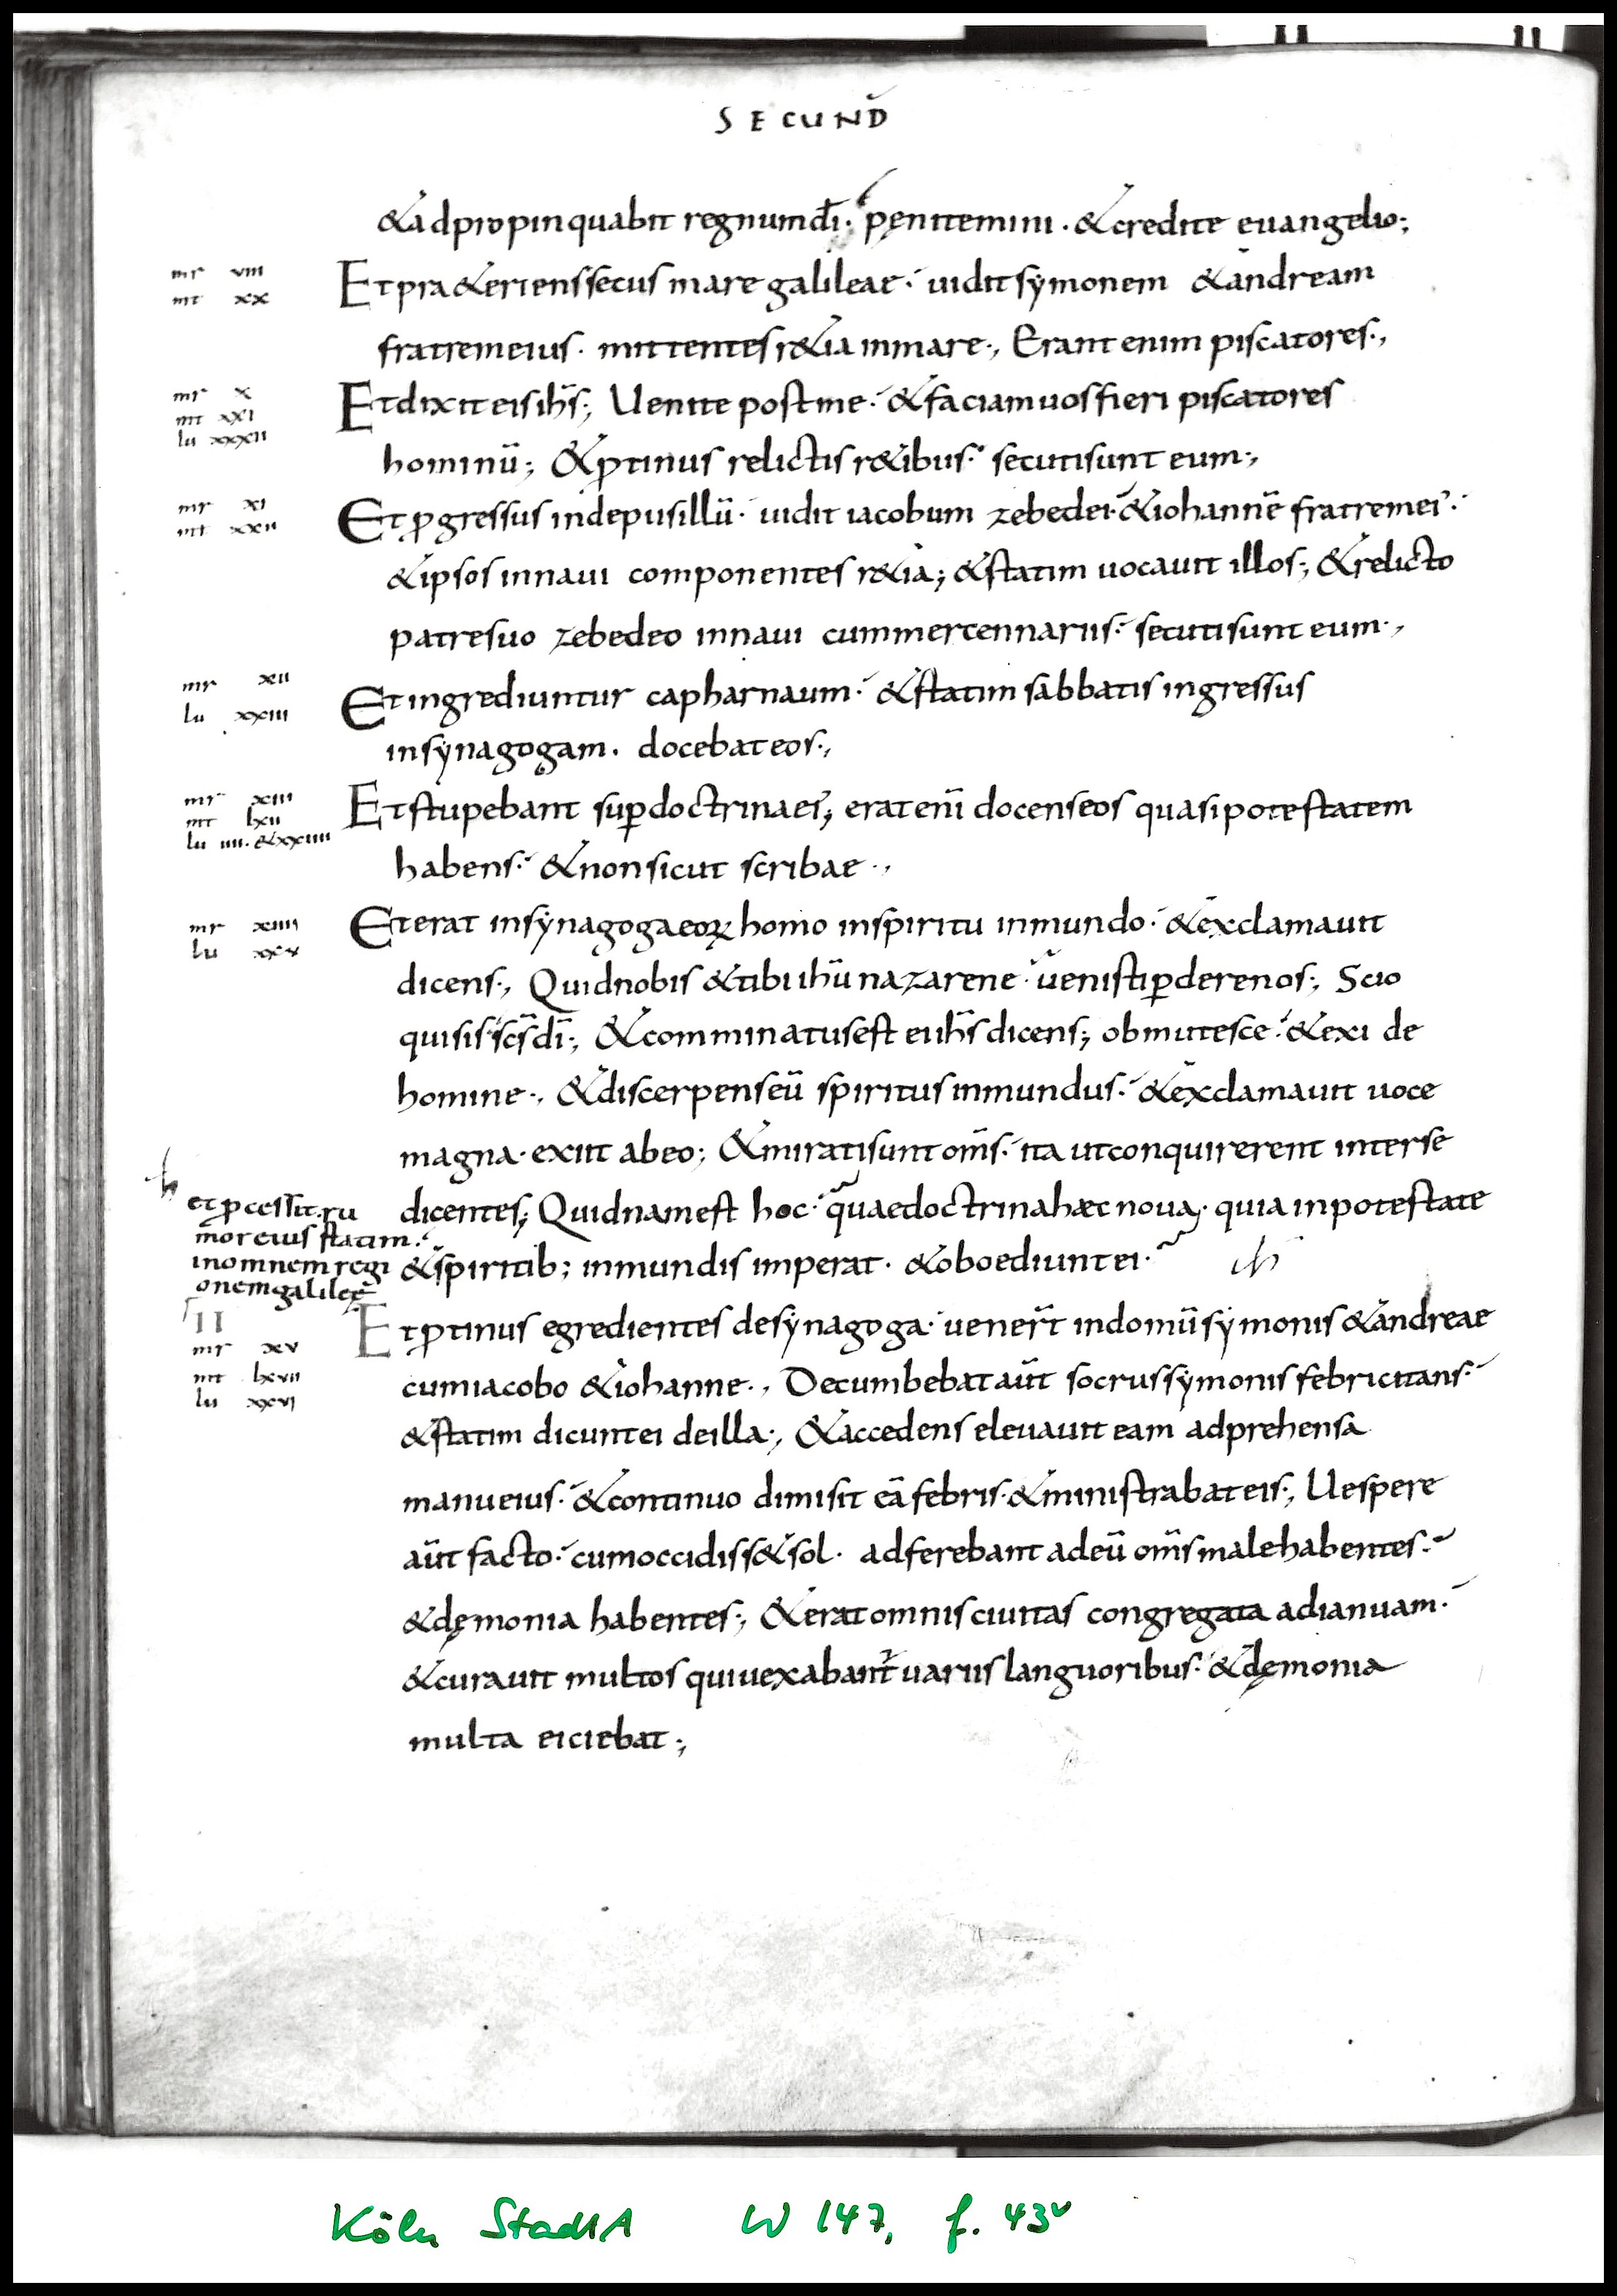 SECUND̄
&adpropinquabit regnum dī· pęnitemini · &credite euangelio;
mr viii
mt xx
Et pra&eriens secus mare galileae· uidit symonem &andream
fratrem eius · mittentes r&ia in mare·, Erant enim piscatores·,
mr x
mt xxi
lu xxxii
Et dixit eis ih̄s; Uenite post me· &faciam uos fieri piscatores
hominū; &ꝓtinus relictis r&ibus· secuti sunt eum·,
mr xi
mt xxii
Et ꝓgressus inde pusillū· uidit iacobum zebedei· &iohannē fratrem ei'·
&ipsos in naui componentes r&ia; &statim uocauit illos; &relicto
patre suo zebedeo in naui cum mercennariis· secuti sunt eum·,
mr xii
lu xxiii
Et ingrediuntur capharnaum· &statim sabbatis ingressus
in synagogam · docebat eos·,
mr xiii
mt lxii
lu iiii · &xxiiii
Et stupebant suꝑ doctrina ei'; erat enī docens eos quasi potestatem
habens· &non sicut scribae·,
mr xiiii
lu xxv
Et erat in synagoga eoꝝ homo in spiritu inmundo· &exclamauit
dicens·, Quid nobis &tibi ihū nazarene· uenisti ꝑdere nos; Scio
qui sis· sc̄s dī; &comminatus est ei ih̄s dicens; obmutesce· &exi de
homine·, &discerpens eū spiritus inmundus· &exclamauit uoce
magna· exiit ab eo; &mirati sunt om̄s· ita ut conquirerent inter se
dicentes; Quidnam est hoc· quae doctrina haec noua· quia in potestate
&spiritib; inmundis imperat · &oboediunt ei· dh
h et ꝓcessit ru
mor eius statim
in omnem regi
onem galileę
II
mr xv
mt lxvii
lu xxvi
Et ꝓtinus egredientes de synagoga· uener̄t in domū symonis &andreae
cum iacobo &iohanne·, Decumbebat aūt socrus symonis febricitans·
&statim dicunt ei de illa·, &accedens eleuauit eam adprehensa
manu eius· &continuo dimisit eā febris· &ministrabat eis·, Uespere
aūt facto· cum occidiss& sol · adferebant ad eū om̄s male habentes·
&dęmonia habentes; &erat omnis ciuitas congregata ad ianuam·
&curauit multos qui uexabant̄ uariis languoribus· &dęmonia
multa eiciebat;
Köln StadtA W 147, f. 43v